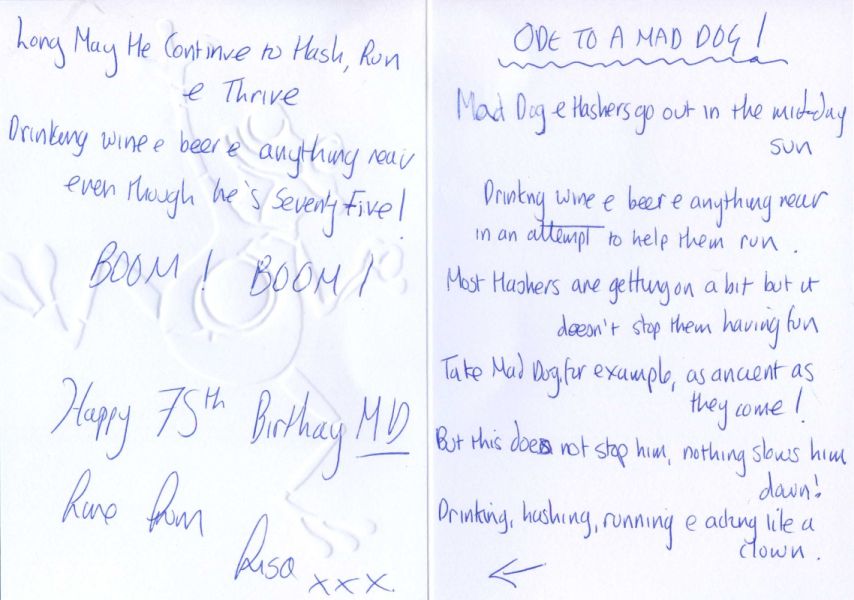 ODE TO A MAD DOG!
Mad Dog & Hashers go out in the mid-day
sun
Drinking wine & beer & anything near
in an attempt to help them run.
Most Hashers are getting on a bit but it
doesn't stop them having fun
Take Mad Dog, for example, as ancient as
they come!
But this does not stop him, nothing slows him
down!
Drinking, hashing, running & acting like a
clown.
←
Long May He Continue to Hash, Run
& Thrive
Drinking wine & beer & anything near
even though he's Seventy Five!
BOOM! BOOM!
Happy 75th Birthay MD
Love from
xxx.